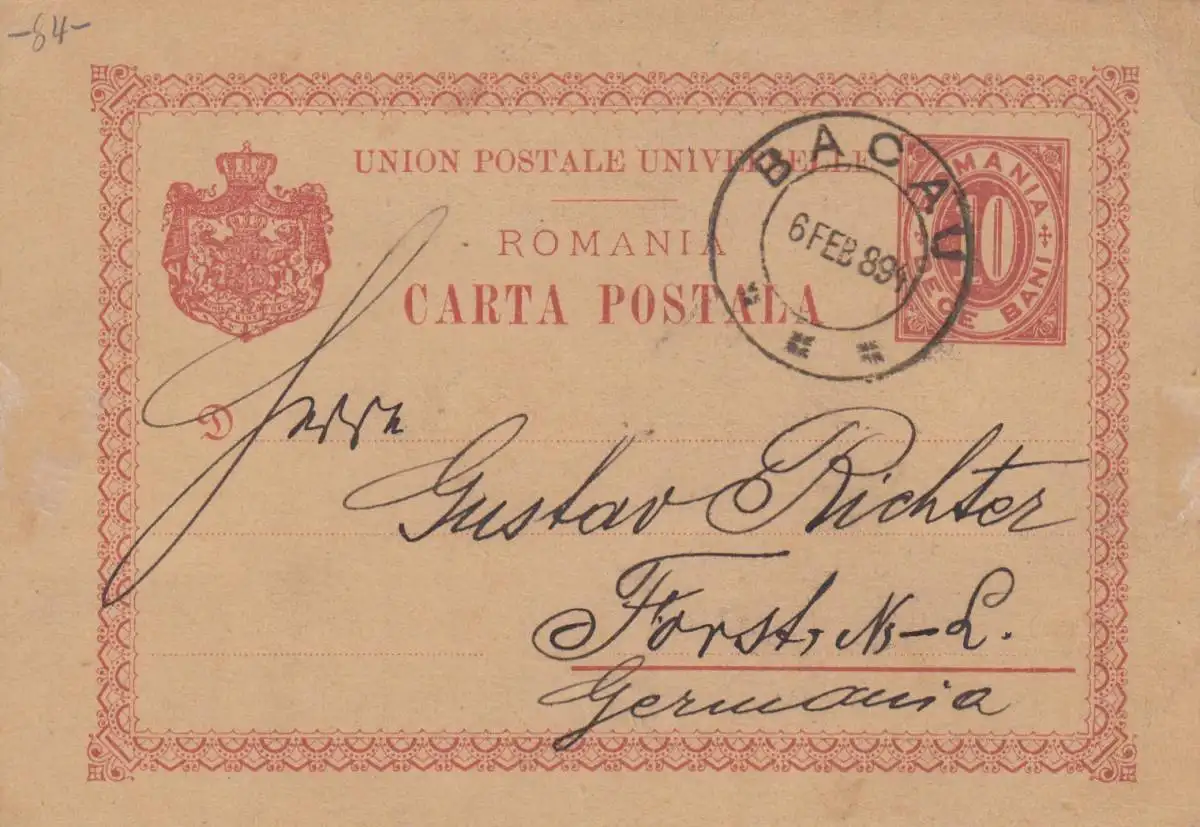 -84-
UNION POSTALE UNIVERSELLE
ROMANIA
CARTA POSTALA
BACAU
6 FEB 894
ROMANIA
10
DECE BANI
D
Herrn
Gustav Richter
Forst, N-L.
Germania